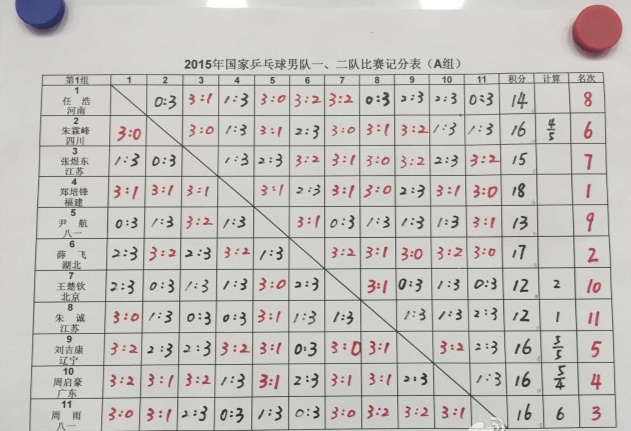 2015年国家乒乓球男队一、二队比赛记分表（A组）
第1组 1 2 3 4 5 6 7 8 9 10 11 积分 计算 名次
1
任 浩 0:3 3:1 1:3 3:0 3:2 3:2 0:3 2:3 2:3 0:3 14 8
河南
2
朱霖峰 3:0 3:0 1:3 3:1 2:3 3:0 3:1 3:2 1:3 1:3 16 4/5 6
四川
3
张煜东 1:3 0:3 1:3 2:3 3:2 3:1 3:0 3:2 2:3 3:2 15 7
江苏
4
郑培锋 3:1 3:1 3:1 3:1 2:3 3:1 3:0 2:3 3:1 3:0 18 1
福建
5
尹 航 0:3 1:3 3:2 1:3 3:1 0:3 1:3 1:3 1:3 3:1 13 9
八一
6
薛 飞 2:3 3:2 2:3 3:2 1:3 3:2 3:1 3:0 3:2 3:0 17 2
湖北
7
王楚钦 2:3 0:3 1:3 1:3 3:0 2:3 3:1 0:3 1:3 0:3 12 2 10
北京
8
朱 诚 3:0 1:3 0:3 0:3 3:1 1:3 1:3 1:3 1:3 2:3 12 1 11
江苏
9
刘吉康 3:2 2:3 2:3 3:2 3:1 0:3 3:0 3:1 3:2 2:3 16 5
辽宁
10
周启豪 3:2 3:1 3:2 1:3 3:1 2:3 3:1 3:1 2:3 1:3 16 5/4 4
广东
11
周 雨 3:0 3:1 2:3 0:3 1:3 0:3 3:0 3:2 3:2 3:1 16 6 3
八一